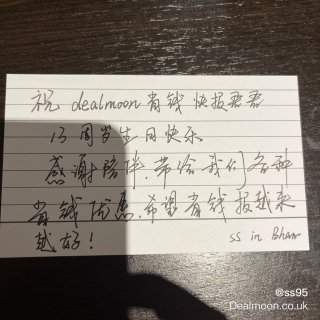 祝 dealmoon 省钱快报君君
13周岁生日快乐
感谢陪伴,带给我们各种
省钱优惠,希望省钱报越来
越好!
ss in Bham
@ss95
Dealmoon.co.uk